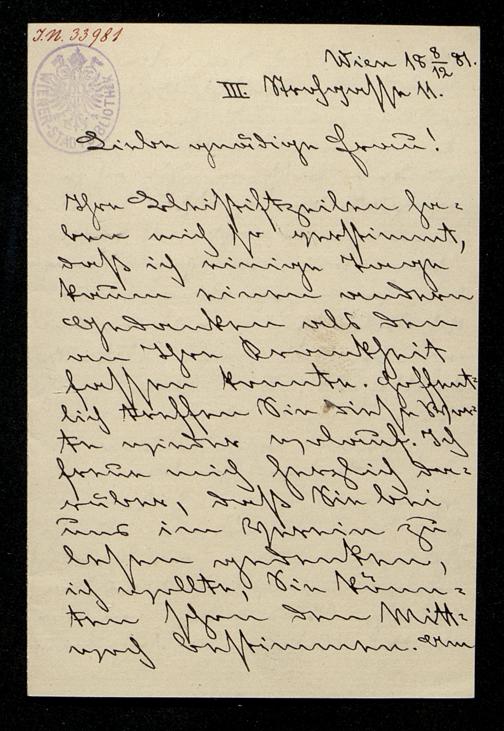 I.N. 33981
WIENER STADTBIBLIOTHEK
Wien 18 8/12 81.
III. Strohgasse 11.
Liebe gnädige Frau!
Ihre Bleistiftzeilen ha-
ben mich so verstimmt,
daß ich einige Tage
kaum einen andern
Gedanken als den
an Ihre Krankheit
fassen konnte. Hoffent-
lich treffen Sie diese Wor-
te wieder wolauf. Ich
freue mich herzlich da-
rüber, daß Sie bei
uns im Verein zu
lesen gedenken,
ich wollte, Sie könn-
ten schon den Mitt-
woch bestimmen. Am